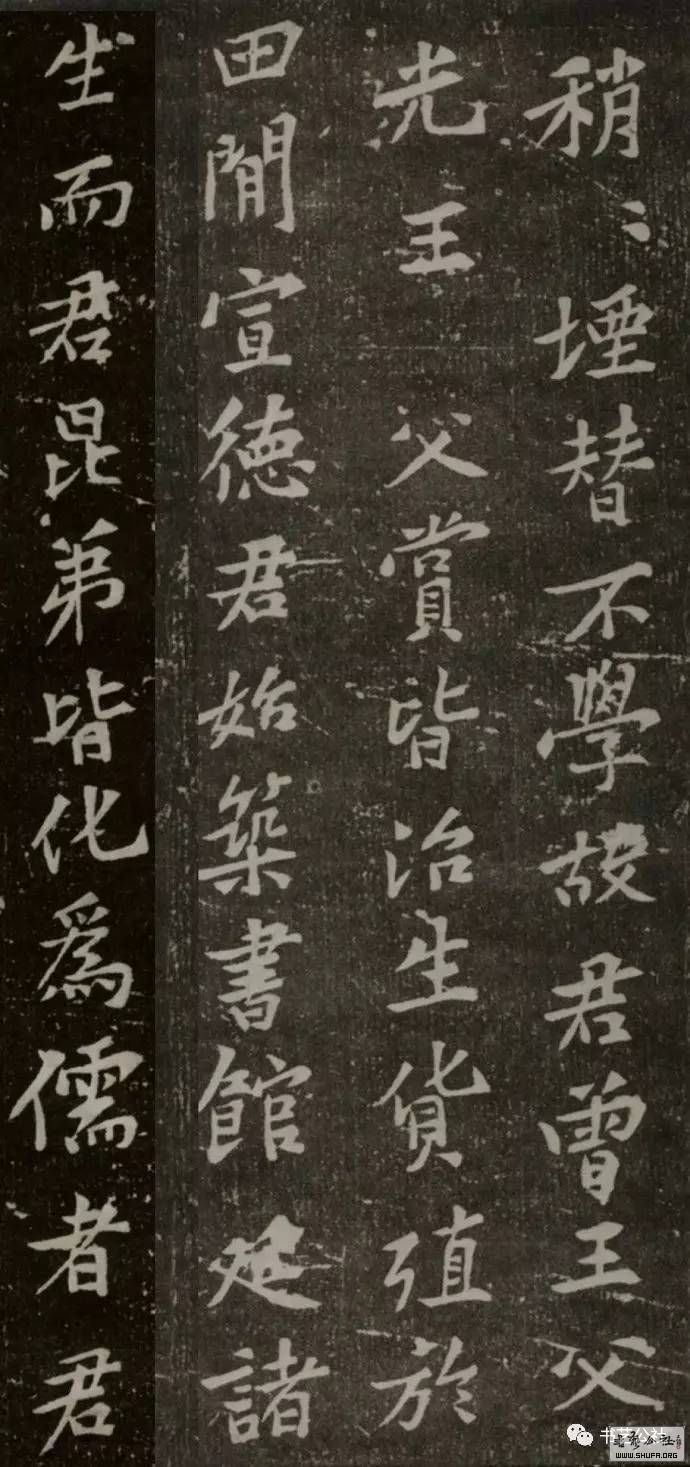 稍〻堙替不學故君曾王父
光王父賞皆治生貨殖於
田閒宣德君始築書館延諸
生而君昆弟皆化爲儒者君
书艺公社
书艺公社
WWW.SHUFA.ORG